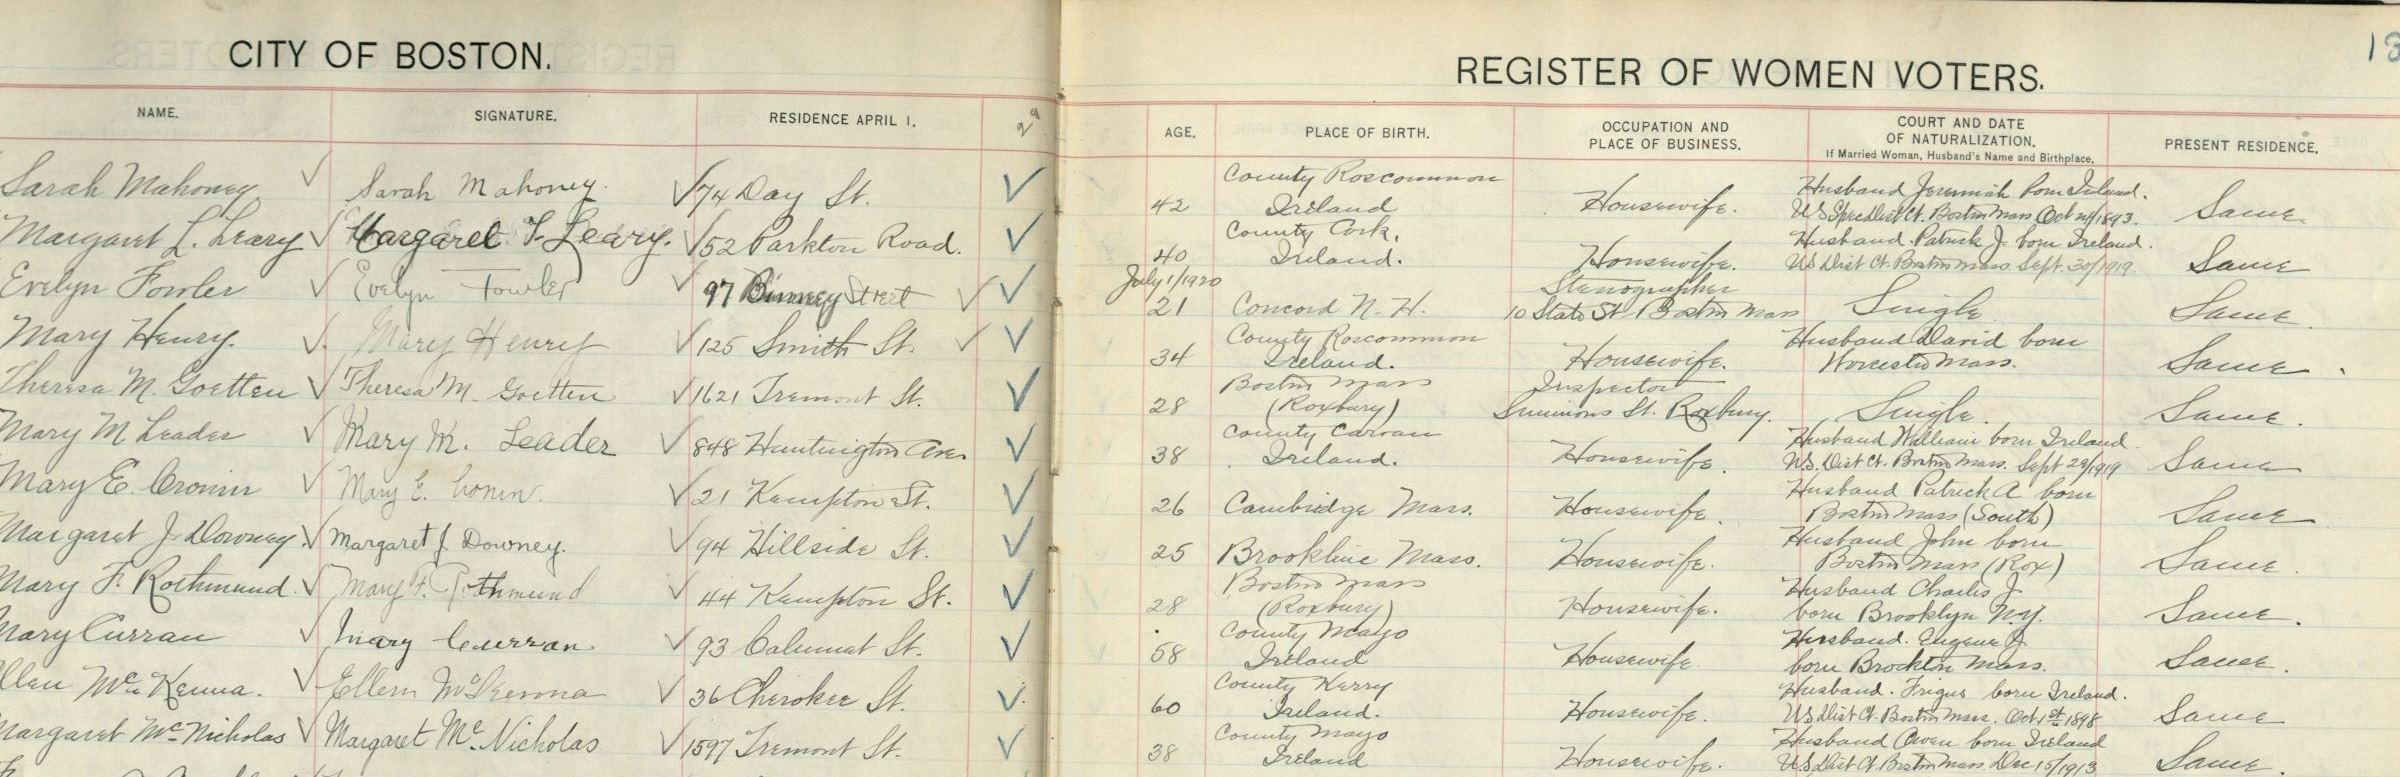 CITY OF BOSTON.
REGISTER OF WOMEN VOTERS.
13
NAME. SIGNATURE. RESIDENCE APRIL 1. AGE. PLACE OF BIRTH. OCCUPATION AND PLACE OF BUSINESS. COURT AND DATE OF NATURALIZATION. If Married Woman, Husband's Name and Birthplace. PRESENT RESIDENCE.
Sarah Mahoney Sarah Mahoney. 74 Day St. 42 County Roscommon Ireland Housewife. Husband Jeremiah born Ireland. US Spec Dist Ct. Boston Mass Oct 24/1893. Same
Margaret L. Leary Margaret F. Leary. 52 Parkton Road. 40 County Cork, Ireland. Housewife. Husband Patrick J. born Ireland. US Dist Ct. Boston Mass Sept. 30/1919 Same
July 1/1920
Evelyn Fowler Evelyn Fowler 97 Binney Street 21 Concord N.H. Stenographer 10 State St Boston Mass Single Same.
Mary Henry. Mary Henry 125 Smith St. 34 County Roscommon Ireland. Housewife. Husband David born Worcester Mass. Same
Theresa M. Goetten Theresa M. Goetten 1621 Tremont St. 28 Boston Mass (Roxbury) Inspector Simmons St. Roxbury. Single Same.
Mary M Leader Mary M. Leader 848 Huntington Ave. 38 County Carvan Ireland. Housewife. Husband William born Ireland. US. Dist Ct. Boston Mass. Sept 29/1919 Same
Mary E. Cronin Mary E. Cronin. 21 Kempton St. 26 Cambridge Mass. Housewife. Husband Patrick A born Boston Mass (South) Same
Margaret J. Downey. Margaret J. Downey. 94 Hillside St. 25 Brookline Mass. Housewife. Husband John born Boston Mass (Rox) Same.
Mary F. Rothmund. Mary F. Rothmund 44 Kempton St. 28 Boston Mass (Roxbury) Housewife. Husband Charles J. born Brooklyn N.Y. Same.
Mary Curran Mary Curran 93 Calumet St. 58 County Mayo Ireland Housewife. Husband. Eugene J. born Brockton Mass. Same.
Ellen McKenna. Ellen McKenna 36 Cherokee St. 60 County Kerry Ireland. Housewife. Husband. born Ireland. US Dist Ct. Boston Mass. Oct 1st 1898 Same
Margaret McNicholas Margaret McNicholas 1597 Tremont St. 38 County Mayo Ireland Housewife. Husband Owen born Ireland U.S Dist Ct. Boston Mass. Dec 15/1913 Same.